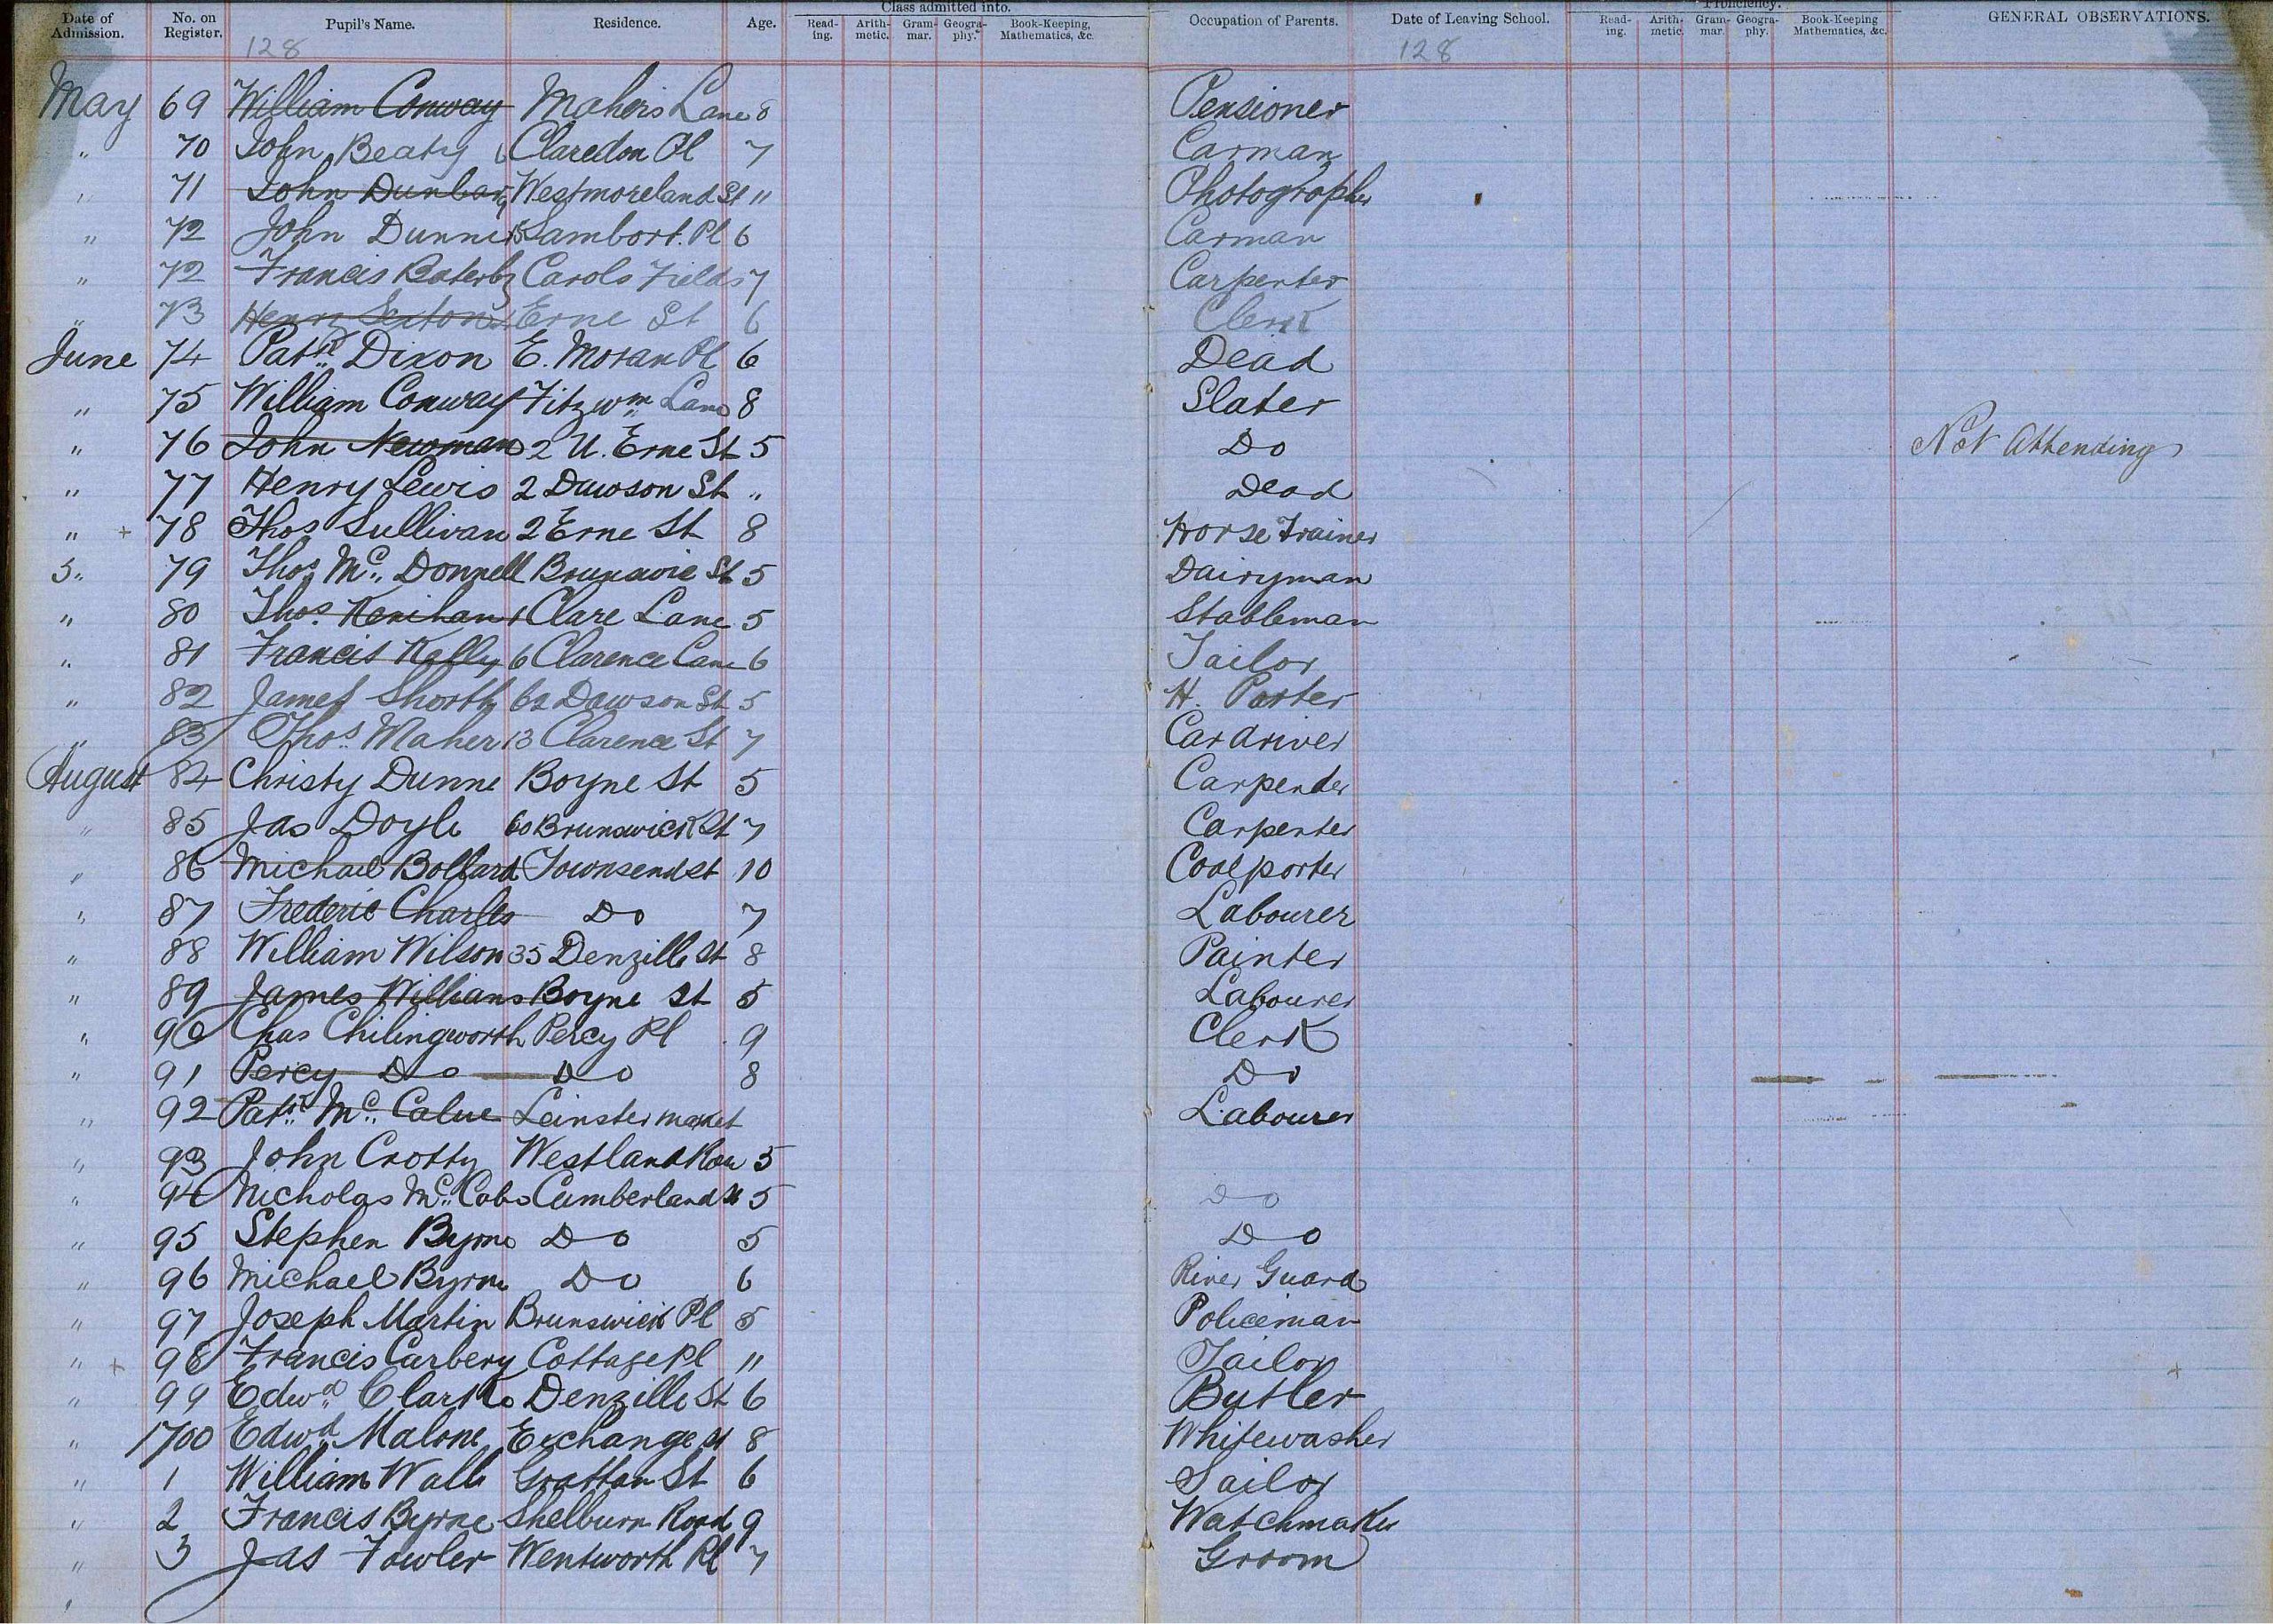 Class admitted into. Proficiency.
Date of Admission. No. on Register. Pupil's Name. Residence. Age. Reading. Arithmetic. Grammar. Geography. Book-Keeping, Mathematics, &c. Occupation of Parents. Date of Leaving School. Reading. Arithmetic. Grammar. Geography. Book-Keeping Mathematics, &c. GENERAL OBSERVATIONS.
128 128
May 69 William Conway Mahers Lane 8 Pensioner
" 70 John Beaty Claredon Pl 7 Carman
" 71 John Dunbar Westmoreland St " Photographer
" 72 John Dunne Pl 6 Carman
" 72 Francis Carols Fields 7 Carpenter
" 73 Henry Sexton Erne St 6 Clerk
June 74 Patk Dixon E. Moran Pl 6 Dead
" 75 William Conway Fitzwm Lane 8 Slater
" 76 John Newman 2 U. Erne St 5 Do Not Attending
" 77 Henry Lewis 2 Dawson St " Dead
" + 78 Thos Sullivan 2 Erne St 8 Horse Trainer
" 79 Thos Mc Donnell St 5 Dairyman
" 80 Thos. Kenihan 1 Clare Lane 5 Stableman
" 81 Francis Kelly 6 Clarence Lane 6 Tailor
" 82 James Shorth 62 Dawson St 5 H. Porter
" 83 Thos Maher 13 Clarence St 7 Cardriver
August 84 Christy Dunne Boyne St 5 Carpender
" 85 Jas Doyle 60 Brunswick St 7 Carpenter
" 86 Michael Bollard Townsend st 10 Coalporter
" 87 Frederic Charles Do 7 Labourer
" 88 William Wilson 35 Denzille St 8 Painter
" 89 James Williams Boyne St 5 Labourer
" 90 Chas Chilingworth Percy Pl 9 Clerk
" 91 Percy Do Do 8 Do
" 92 Patk Mc Leinster market Labourer
" 93 John Crotty Westland Row 5
" 94 Nicholas Mc Cabe Cumberland St 5 Do
" 95 Stephen Byrne Do 5 Do
" 96 Michael Byrne Do 6 River Guard
" 97 Joseph Martin Brunswick Pl 5 Policeman
" + 98 Francis Carbery Cottage Pl 11 Tailor +
" 99 Edwd Clarke Denzille St 6 Butler
" 1700 Edwd Malone Exchange st 8 Whitewasher
" 1 William Wall Grattan St 6 Sailor
" 2 Francis Byrne Shelburn Road 9 Watchmaker
" 3 Jas Fowler Wentworth Pl 7 Groom